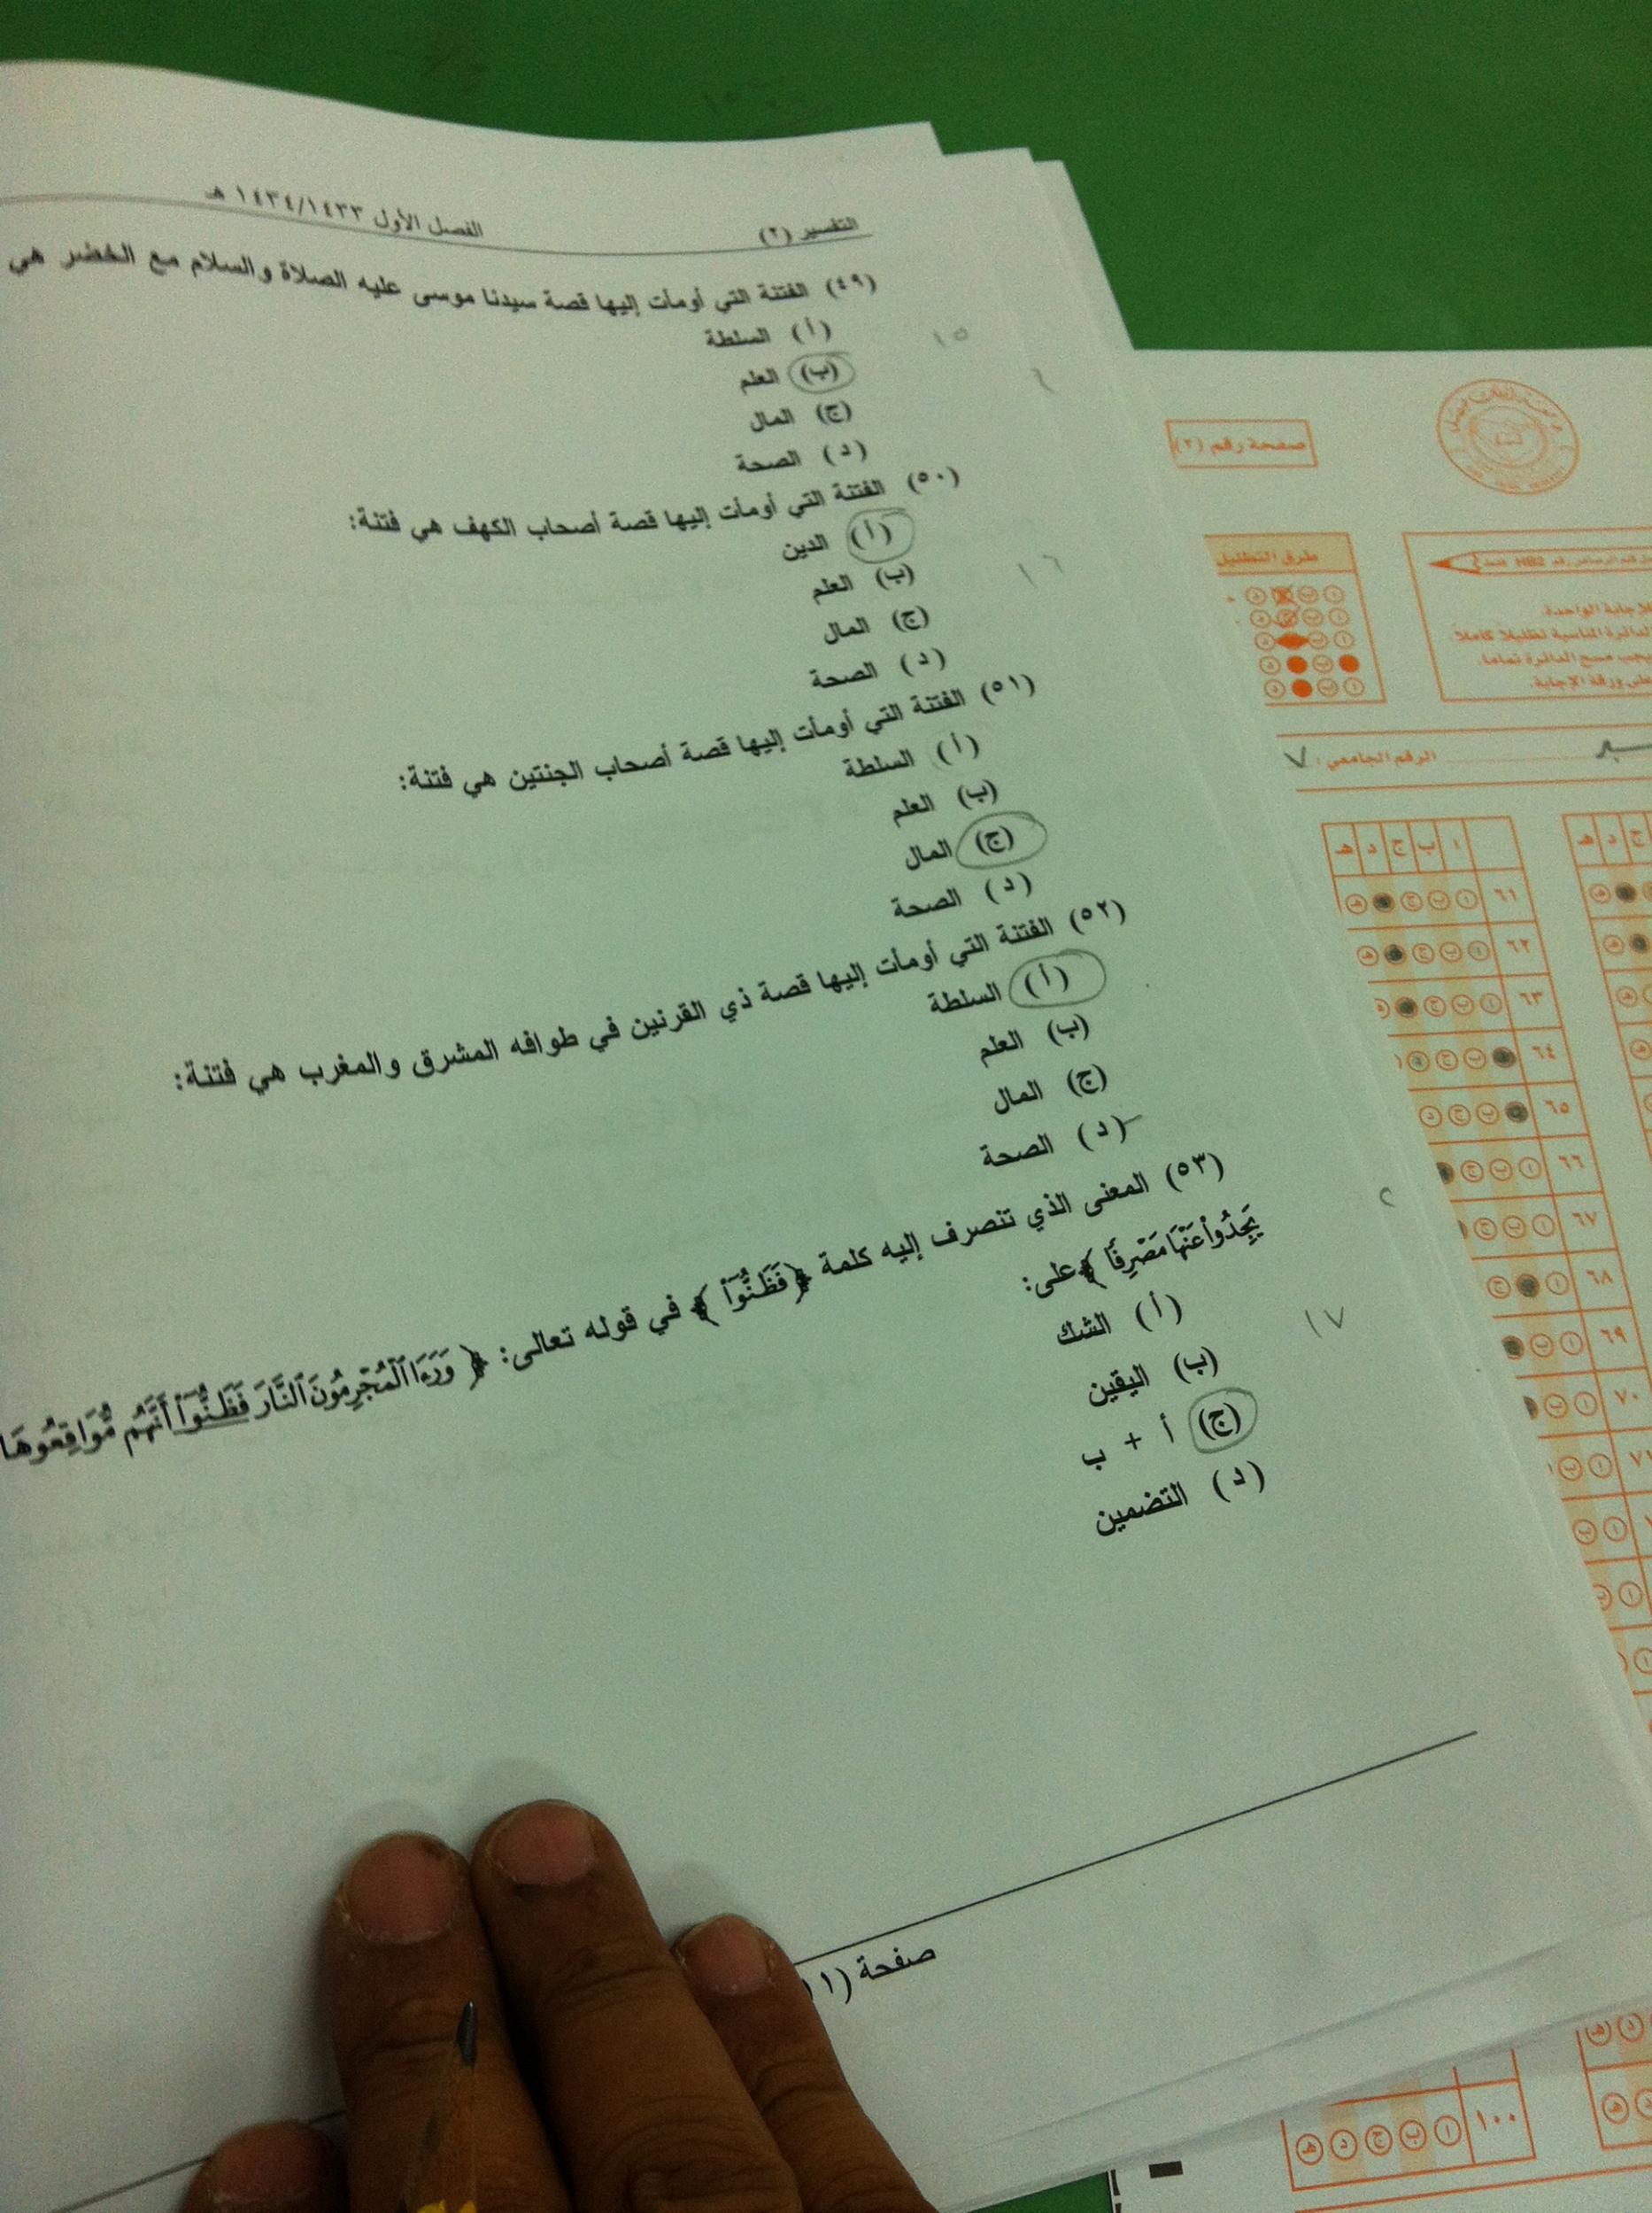 التفسير (٢) الفصل الأول ١٤٣٤/١٤٣٣ هـ
(٤٩) الفتنة التي أومأت إليها قصة سيدنا موسى عليه الصلاة والسلام مع الخضر هي
(أ) السلطة
(ب) العلم
(ج) المال
(د) الصحة
١٥
(٥٠) الفتنة التي أومأت إليها قصة أصحاب الكهف هي فتنة:
(أ) الدين
(ب) العلم
(ج) المال
(د) الصحة
١٦
(٥١) الفتنة التي أومأت إليها قصة أصحاب الجنتين هي فتنة:
(أ) السلطة
(ب) العلم
(ج) المال
(د) الصحة
(٥٢) الفتنة التي أومأت إليها قصة ذي القرنين في طوافه المشرق والمغرب هي فتنة:
(أ) السلطة
(ب) العلم
(ج) المال
(د) الصحة
(٥٣) المعنى الذي تنصرف إليه كلمة ﴿فَظَنُّوٓا۟﴾ في قوله تعالى: ﴿وَرَءَا ٱلْمُجْرِمُونَ ٱلنَّارَ فَظَنُّوٓا۟ أَنَّهُم مُّوَاقِعُوهَا
يَجِدُوا۟ عَنْهَا مَصْرِفًا﴾ على:
(أ) الشك
(ب) اليقين
(ج) أ + ب
(د) التضمين
١٧
صفحة (١١
صفحة رقم (٢)
طرق التظليل
HB2 فقط
الإجابة الواحدة.
الدائرة المناسبة تظليلا كاملا
يجب مسح الدائرة تماما.
على ورقة الإجابة.
الرقم الجامعي: ٧
ا ب ج د هـ
٦١ ا ب ج هـ
٦٢ ا ب ج هـ
٦٣ ا ب ج
٦٤ ب ج د
٦٥ ب ج د
٦٦ ا ب ج
٦٧ ا ب ج
٦٨ ا ج
٦٩ ا ب
٧٠ ا ب
٧١ ا ب
١٠٠ ا ب ج د هـ